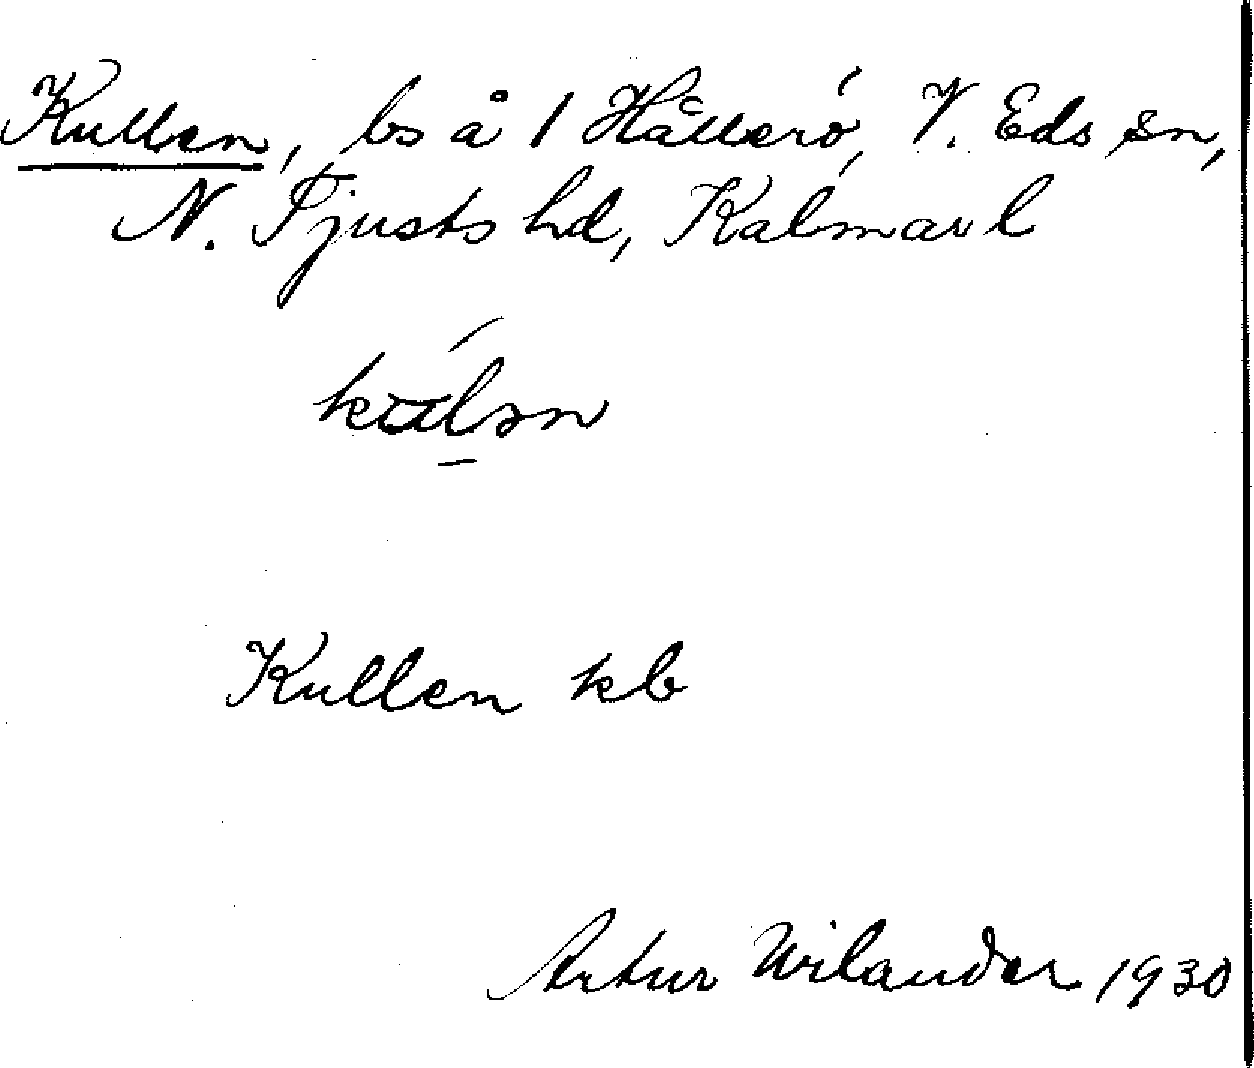 Kullen, ls å 1 Hållerö, V. Eds sn,
N. Tjusts hd, Kalmar l
Kullen kb
Artur Wilander 1930